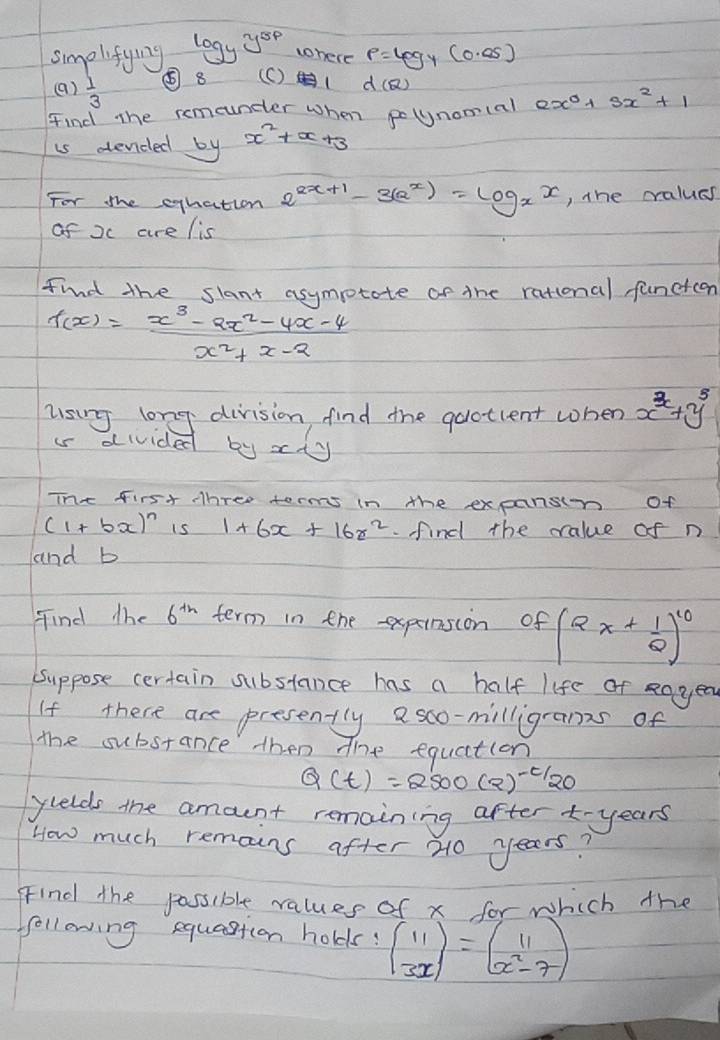 Simplifying log_y y^5P where P=log_4 (0.25)
(a) 1/3 (b) 8 (C) 1 d (2)
Find the remainder when polynomial 2x^5 + 3x^2 + 1
is devided by x^2 + x + 3
For the equation 2^(2x+1) - 3(2^x) = log_x x, the values
of x are / is
Find the slant asymptote of the rational function
f(x) = (x^3 - 2x^2 - 4x - 4) / (x^2 + x - 2)
Using long division, find the quotient when x^3 + y^3
is divided by x + y
The first three terms in the expansion of
(1 + bx)^n is 1 + 6x + 16x^2. find the value of n
and b
Find the 6th term in the expansion of (2x + 1/2)^10
Suppose certain substance has a half life of 20 year
If there are presently 2500-milligrams of
the substance then the equation
Q(t) = 2500 (2)^(-t/20)
yields the amount remaining after t-years
How much remains after 210 years?
Find the possible values of x for which the
following equation holds: (11 3x) = (11 x^2 - 7)